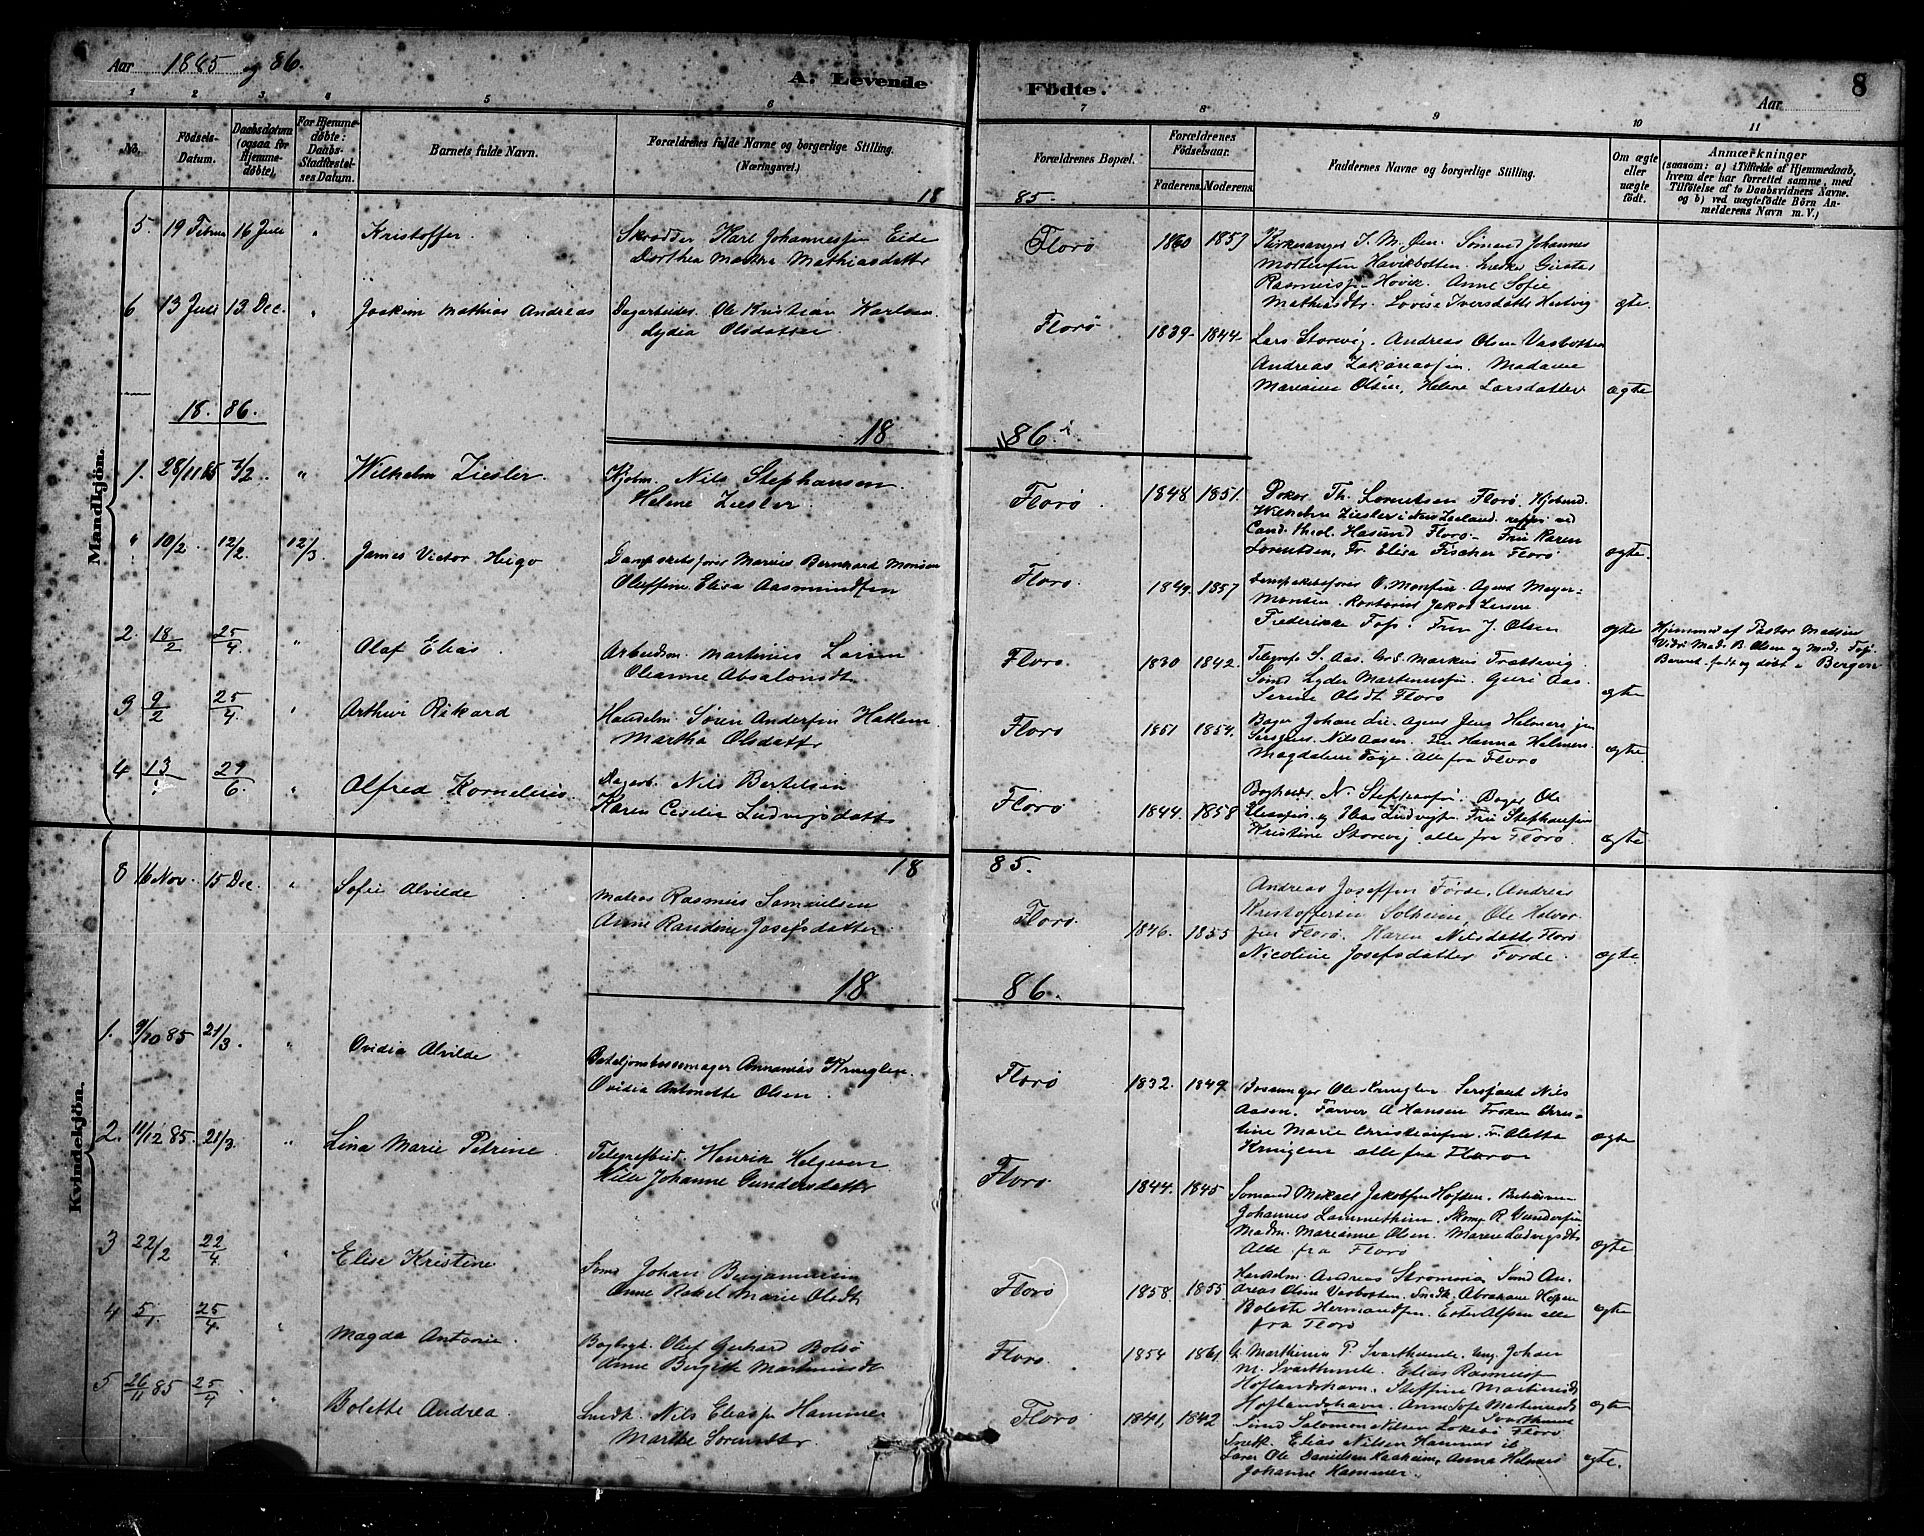 Aar 1885 og 86.
A. Levende Födte.
8
Aar
1 2 3 4 5 6 7 8 9 10 11
No.
Födsels-Datum.
Daabsdatum (ogsaa for Hjemmedöbte).
For Hjemmedöbte: Daabs-Stadfæstelses Datum.
Barnets fulde Navn.
Forældrenes fulde Navne og borgerlige Stilling. (Næringsvei.)
Forældrenes Bopæl.
Forældrenes Födselsaar.
Faderens. Moderens.
Faddernes Navne og borgerlige Stilling.
Om ægte eller uægte födt.
Anmærkninger
(saasom: a) i Tilfælde af Hjemmedaab, hvem der har forrettet samme, med Tilföielse af to Daabsvidners Navne. og b) ved uægtefödte Börn Anmelderens Navn m. V.)
Mandkjön.
18 85.
5. 19 Februar 16 Juli " Kristoffer. Skrædder Karl Johannessen Eide
Dorthea Martha Mathiasdatter
Florø 1860 1857 Kirkesanger J. M. Øen. Sømand Johannes
Mortensen Havikbotten. Snedker Gustav
Rasmussen Hovik. Anne Sofie
Mathiasdtr. Lovise Iversdatter Hertvig ægte.
6 13 Juli 13 Dec. " Joakim Mathias Andreas Dagarbeider Ole Kristian Karlsen
Lydia Olsdatter
Florø 1839 1844 Lars Storevig. Andreas Olsen Vasbotten
Andreas Zakariassen. Madame
Mariane Olsen, Helene Larsdatter ægte
18. 86.
18 86.
1. 28/11 85 7/2 " Wilhelm Ziesler Kjøbm. Nils Stephansen.
Helene Ziesler.
Florø 1848 1851. Doktor Th. Lorentsen Florø. Kjøbmd.
Wilhelm Ziesler i New Zeeland. repr. ved
Cand. theol. Hasund Florø. Fru Karen
Lorentsen, Fr. Elisa Fischer Florø ægte.
" 10/2. 12/2. 12/3 James Victor Hugo Dampskibsfører Marius Bernhard Monsen
Oleffine Elisa Aasmundsen
Florø. 1849. 1857 Dampskibsfører O. Monsen. Agent Meyer
Monsen. Kontorist Jakob
Frederikke Foss. Fru J. Olsen ægte Hjemmed. af Pastor Madsen
Vidn. Mad. B. Olsen og Mad. Foss.
Barnet født og døbt i Bergen
2. 18/2 25/4 " Olaf Elias. Arbeidsm. Martinus Larsen
Oleanne Absalonsdt.
Florø. 1830 1842. Telegrafb. S. Aas. Markus Trættevig.
Sømd. Lyder Martinussen. Guri Aas.
Serine Olsdt. Florø ægte
3 9/2 25/4. " Arthur Rikard Handelm. Søren Andersen Hatlem.
Martha Olsdatter
Florø 1851 1854. Bager Johan Lie. Agent Jens Helmers jun
Sergeant Nils Aasen. Fru Hanna Helmers
Magdalene Foss. Alle fra Florø ægte
4 13 29/6. " Alfred Kornelius. Dagarb. Nils Bertelsen
Karen Cecilie Ludvigsdatter
Florø 1844. 1858 N. Stephansen. Bager Ole
Eliassen. og Hans Ludvigsen. Fru Stephansen
Kristine Storevig, alle fra Florø. ægte
Kvindekjön.
18 85.
8 16 Nov. 15 Dec. " Sofie Alvilde Matros Rasmus Samuelsen
Anne Randine Josefsdatter.
Florø. 1846. 1855 Andreas Joseffsen Førde, Andreas
Kristoffersen Solheim, Ole Halvor
sen Florø. Karen Nilsdatter Florø
Nicoline Josefsdatter Førde. ægte
18 86.
1. 9/10 85 21/3. " Ovidia Alvilde Bataljonsbøssemager Annanias Kringlen.
Ovidia Antonette Olsen.
Florø 1832. 1849. Bøssmager Ole Kringlen. Sersjant Nils
Aasen. Farver A. Hansen. Frøken Chris-
tine Marie Christiansen. Fr. Aletta
Kringlen alle fra Florø ægte
2. 11/12 85. 21/3. " Lina Marie Petrine. Telegrafbud. Henrik Helgesen
Johanne Gundersdatter
Florø 1844. 1845 Sømand Mikael Jakobsen Hofsen.
Johannes Lammetun. R. Gundersen
Madm. Marianne Olsen. Maren Ludvigsdtr.
Alle fra Florø ægte
3 22/2 22/4 " Elise Kristine Sømd. Johan Benjaminsen
Anne Rakel Marie Olsdt.
Florø 1858. 1855 Handelm. Andreas Strømmen, Sømd. An-
dreas Olsen Vasbotten. Snedk. Abraham Hopen
Bolette Hermandsen. Ester Alfsen alle
fra Florø ægte
4 5/1 25/4. " Magda Antonie. Bagbryt. Oluf Gerhard Bolsø
Anne Birgitte Martinusdt.
Florø. 1854 1861. G. Marthinus P. Svarthumle. Ung. Johan
M. Svarthumle. Elias Rasmussen
Hoflandshavn. Steffine Martinusdt.
Hoflandshavn. Anne Sofie Martinusdt.
Svarthumle ægte
5 26/11 85 25/4 " Bolette Andrea. Snedk. Nils Eliassen Hammer
Marthe Sørensdtr.
Florø 1841. 1842 Sømd. Salomon Nilsen Florø
Snedk. Elias Nilsen Hammer
Ole Danielsen Anna Helmers
Johanne Hammer. ægte.